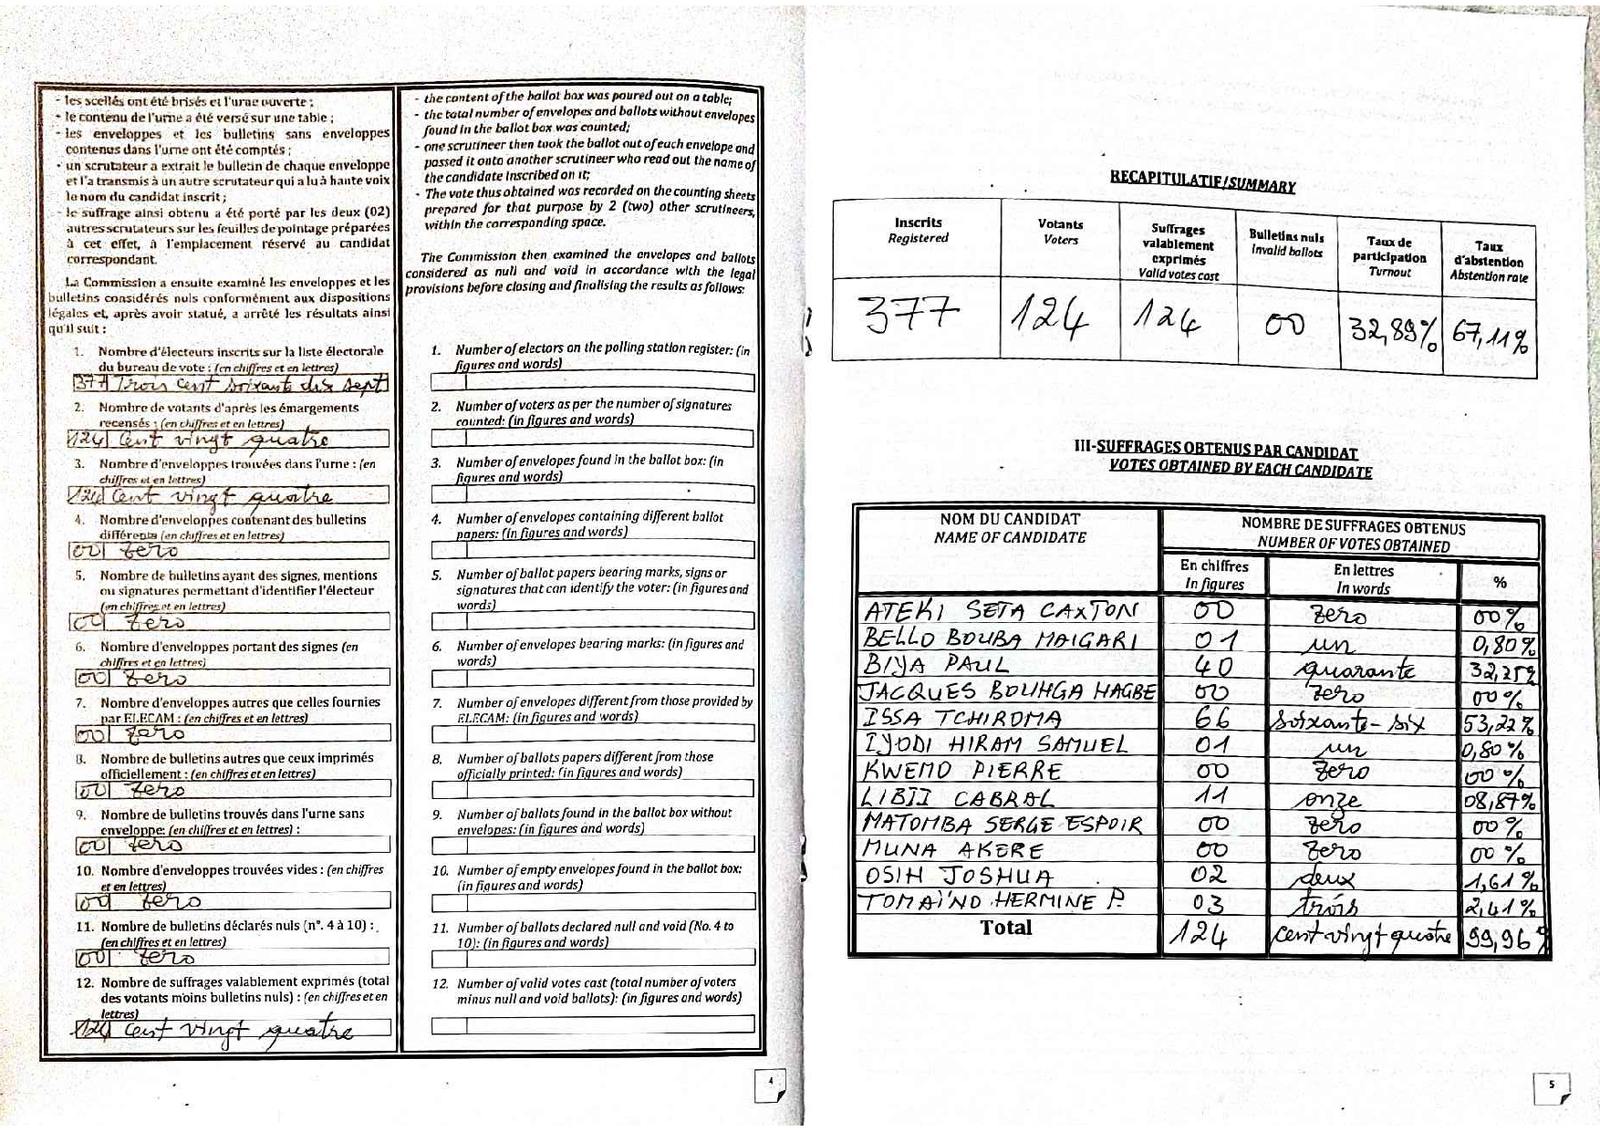 - les scellés ont été brisés et l'urne ouverte ;
- le contenu de l'urne a été versé sur une table ;
- les enveloppes et les bulletins sans enveloppes
contenus dans l'urne ont été comptés ;
- un scrutateur a extrait le bulletin de chaque enveloppe
et l'a transmis à un autre scrutateur qui a lu à haute voix
le nom du candidat inscrit ;
- le suffrage ainsi obtenu a été porté par les deux (02)
autres scrutateurs sur les feuilles de pointage préparées
à cet effet, à l'emplacement réservé au candidat
correspondant.
La Commission a ensuite examiné les enveloppes et les
bulletins considérés nuls conformément aux dispositions
légales et, après avoir statué, a arrêté les résultats ainsi
qu'il suit :
1. Nombre d'électeurs inscrits sur la liste électorale
du bureau de vote : (en chiffres et en lettres)
377 Trois cent soixante dix sept
2. Nombre de votants d'après les émargements
recensés : (en chiffres et en lettres)
124 cent vingt quatre
3. Nombre d'enveloppes trouvées dans l'urne : (en
chiffres et en lettres)
124 cent vingt quatre
4. Nombre d'enveloppes contenant des bulletins
différents (en chiffres et en lettres)
00 zero
5. Nombre de bulletins ayant des signes, mentions
ou signatures permettant d'identifier l'électeur
(en chiffres et en lettres)
00 zero
6. Nombre d'enveloppes portant des signes (en
chiffres et en lettres)
00 zero
7. Nombre d'enveloppes autres que celles fournies
par ELECAM : (en chiffres et en lettres)
00 zero
8. Nombre de bulletins autres que ceux imprimés
officiellement : (en chiffres et en lettres)
00 zero
9. Nombre de bulletins trouvés dans l'urne sans
enveloppe: (en chiffres et en lettres) :
00 zero
10. Nombre d'enveloppes trouvées vides : (en chiffres
et en lettres)
00 zero
11. Nombre de bulletins déclarés nuls (n°. 4 à 10) :
(en chiffres et en lettres)
00 zero
12. Nombre de suffrages valablement exprimés (total
des votants moins bulletins nuls) : (en chiffres et en
lettres)
124 cent vingt quatre
- the content of the ballot box was poured out on a table;
- the total number of envelopes and ballots without envelopes
found in the ballot box was counted;
- one scrutineer then took the ballot out of each envelope and
passed it onto another scrutineer who read out the name of
the candidate inscribed on it;
- The vote thus obtained was recorded on the counting sheets
prepared for that purpose by 2 (two) other scrutineers,
within the corresponding space.
The Commission then examined the envelopes and ballots
considered as null and void in accordance with the legal
provisions before closing and finalising the results as follows:
1. Number of electors on the polling station register: (in
figures and words)
2. Number of voters as per the number of signatures
counted: (in figures and words)
3. Number of envelopes found in the ballot box: (in
figures and words)
4. Number of envelopes containing different ballot
papers: (in figures and words)
5. Number of ballot papers bearing marks, signs or
signatures that can identify the voter: (in figures and
words)
6. Number of envelopes bearing marks: (in figures and
words)
7. Number of envelopes different from those provided by
ELECAM: (in figures and words)
8. Number of ballots papers different from those
officially printed: (in figures and words)
9. Number of ballots found in the ballot box without
envelopes: (in figures and words)
10. Number of empty envelopes found in the ballot box:
(in figures and words)
11. Number of ballots declared null and void (No. 4 to
10): (in figures and words)
12. Number of valid votes cast (total number of voters
minus null and void ballots): (in figures and words)
4
RECAPITULATIF/SUMMARY
Inscrits Registered | Votants Voters | Suffrages valablement exprimés Valid votes cast | Bulletins nuls Invalid ballots | Taux de participation Turnout | Taux d'abstention Abstention rate
377 124 124 00 32,89% 67,11%
III-SUFFRAGES OBTENUS PAR CANDIDAT
VOTES OBTAINED BY EACH CANDIDATE
NOM DU CANDIDAT NOMBRE DE SUFFRAGES OBTENUS
NAME OF CANDIDATE NUMBER OF VOTES OBTAINED
En chiffres En lettres %
In figures In words
ATEKI SETA CAXTON 00 zero 00%
BELLO BOUBA MAIGARI 01 un 0,80%
BIYA PAUL 40 quarante 32,25%
JACQUES BOUHGA HAGBE 00 zero 00%
ISSA TCHIROMA 66 soixante-six 53,22%
IYODI HIRAM SAMUEL 01 un 0,80%
KWEMO PIERRE 00 zero 00%
LIBII CABRAL 11 onze 08,87%
MATOMBA SERGE ESPOIR 00 zero 00%
MUNA AKERE 00 zero 00%
OSIH JOSHUA 02 deux 1,61%
TOMAÏNO HERMINE P. 03 trois 2,41%
Total 124 cent vingt quatre 99,96%
5